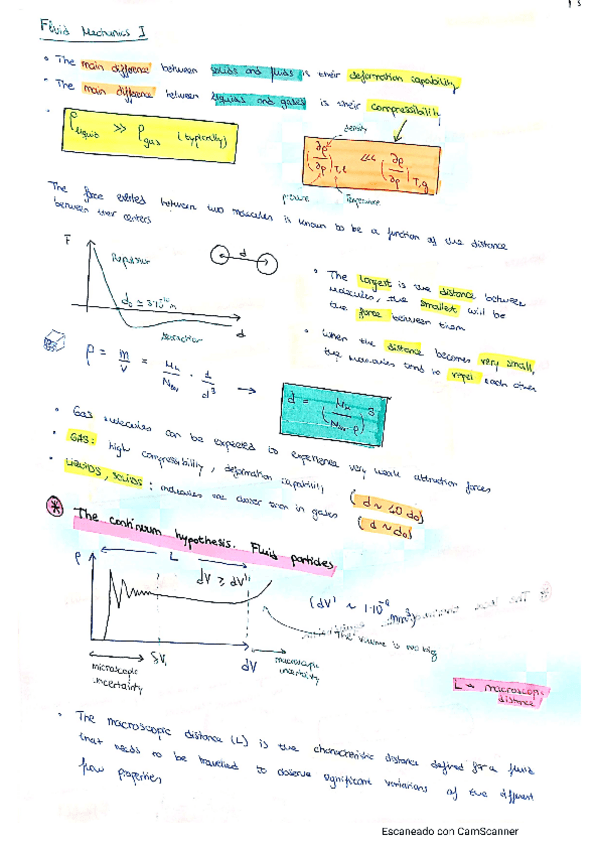 Fluid Mechanics I
• The main difference between solids and fluids is their deformation capability
• The main difference between liquids and gases is their compressibility
ρ liquid >> ρ gas (typically)
density
(∂ρ/∂p) T,l <<< (∂ρ/∂p) T,g
The force exerted between two molecules is known to be a function of the distance
between their centers
F
Repulsion
d
d₀ ≃ 3·10⁻¹⁰ m
d
• The largest is the distance between
molecules, the smallest will be
the force between them
• When the distance becomes very small,
the molecules tend to repel each other
ρ = m/V = · 1/d³ →
d =
• Gas molecules can be expected to experience very weak attraction forces
• GAS: high compressibility, deformation capability (d ~ 10 d₀)
• LIQUIDS, SOLIDS: molecules are closer than in gases (d ~ d₀)
* The continuum hypothesis. Fluid particles
ρ
L
dV ≥ dV'
(dV' ~ 1·10⁻⁹ mm³)
The volume is too big
microscopic
uncertainty
δV₁
dV
macroscopic
uncertainty
L → macroscopic
distance
• The macroscopic distance (L) is the characteristic distance defined for a fluid
that needs to be travelled to observe significant variations of the different
flow properties
Escaneado con CamScanner